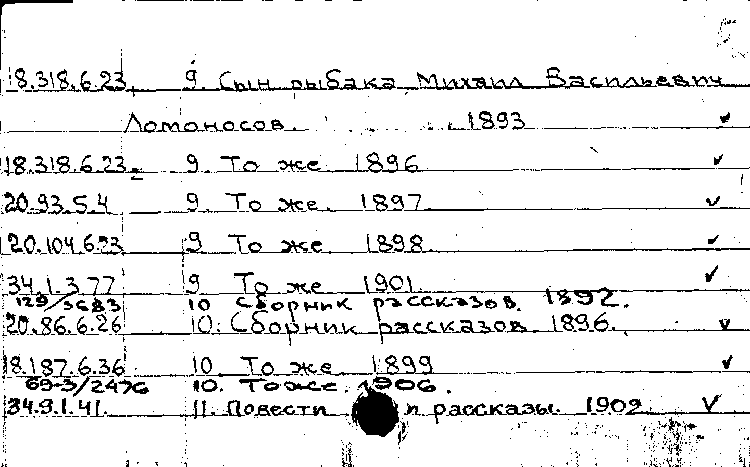 18.318.6.23. 9. Сын рыбака Михаил Васильевич
Ломоносов. 1893 ✓
18.318.6.23 9. То же 1896 ✓
20.93.5.4 9. То же. 1897 ✓
20.104.6.23 9 То же 1898 ✓
34.1.3.77 9 То же 1901. ✓
129/3683 10 Сборник рассказов. 1892.
20.86.6.26 10. Сборник рассказов. 1896. ✓
18.187.6.36 10. То же 1899 ✓
69-3/2476 10. То же. 1906.
34.9.1.41. 11. Повести и рассказы. 1902. ✓